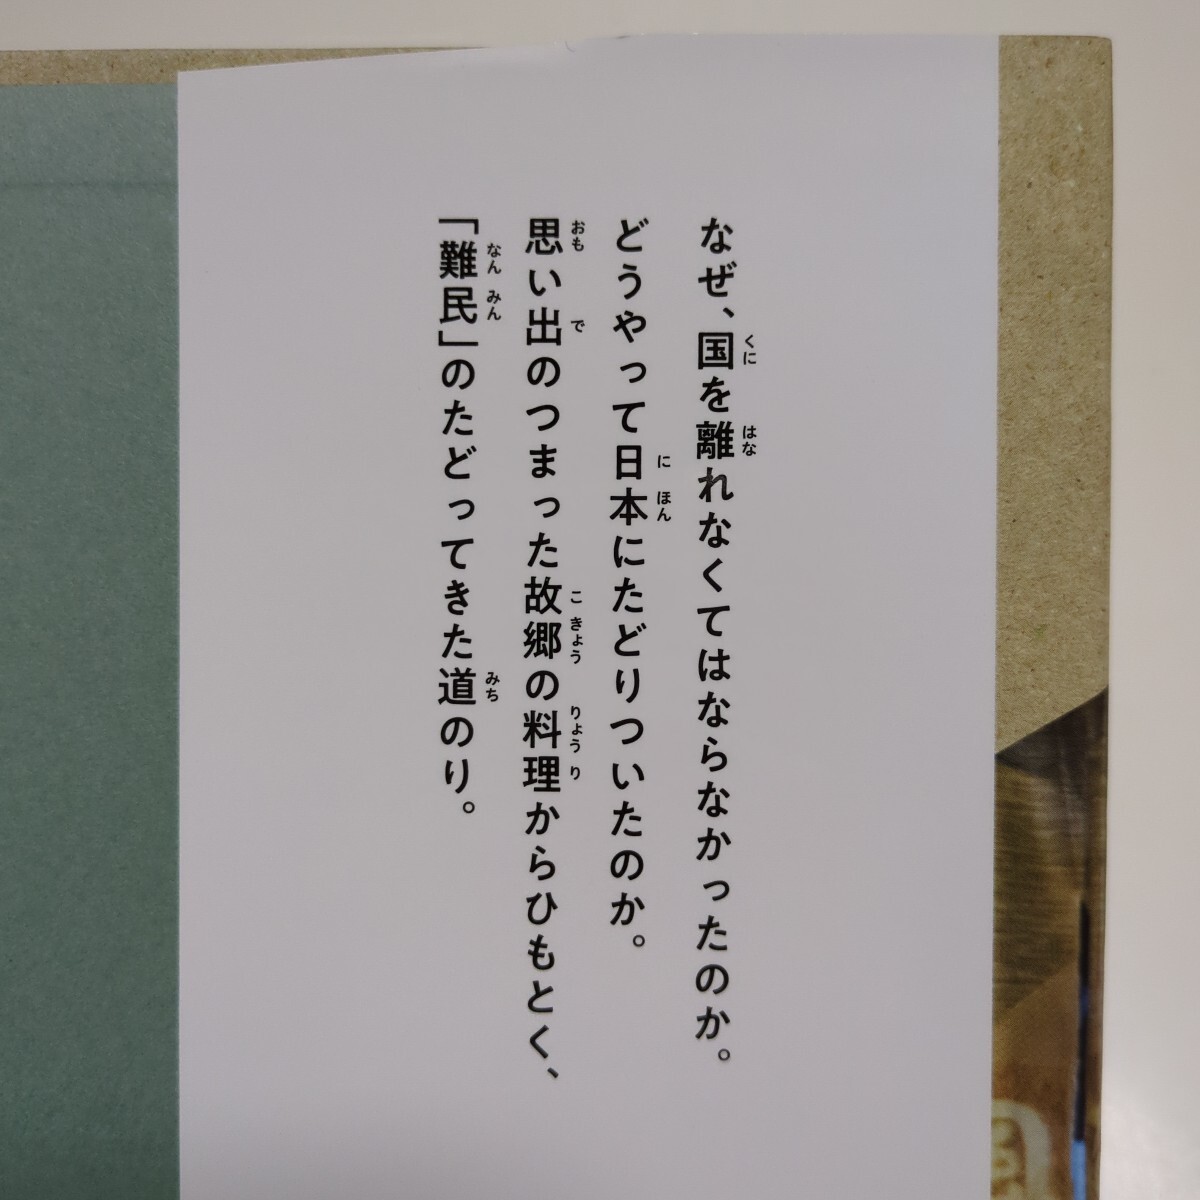 なぜ、国を離れなくてはならなかったのか。
どうやって日本にたどりついたのか。
思い出のつまった故郷の料理からひもとく、
「難民」のたどってきた道のり。